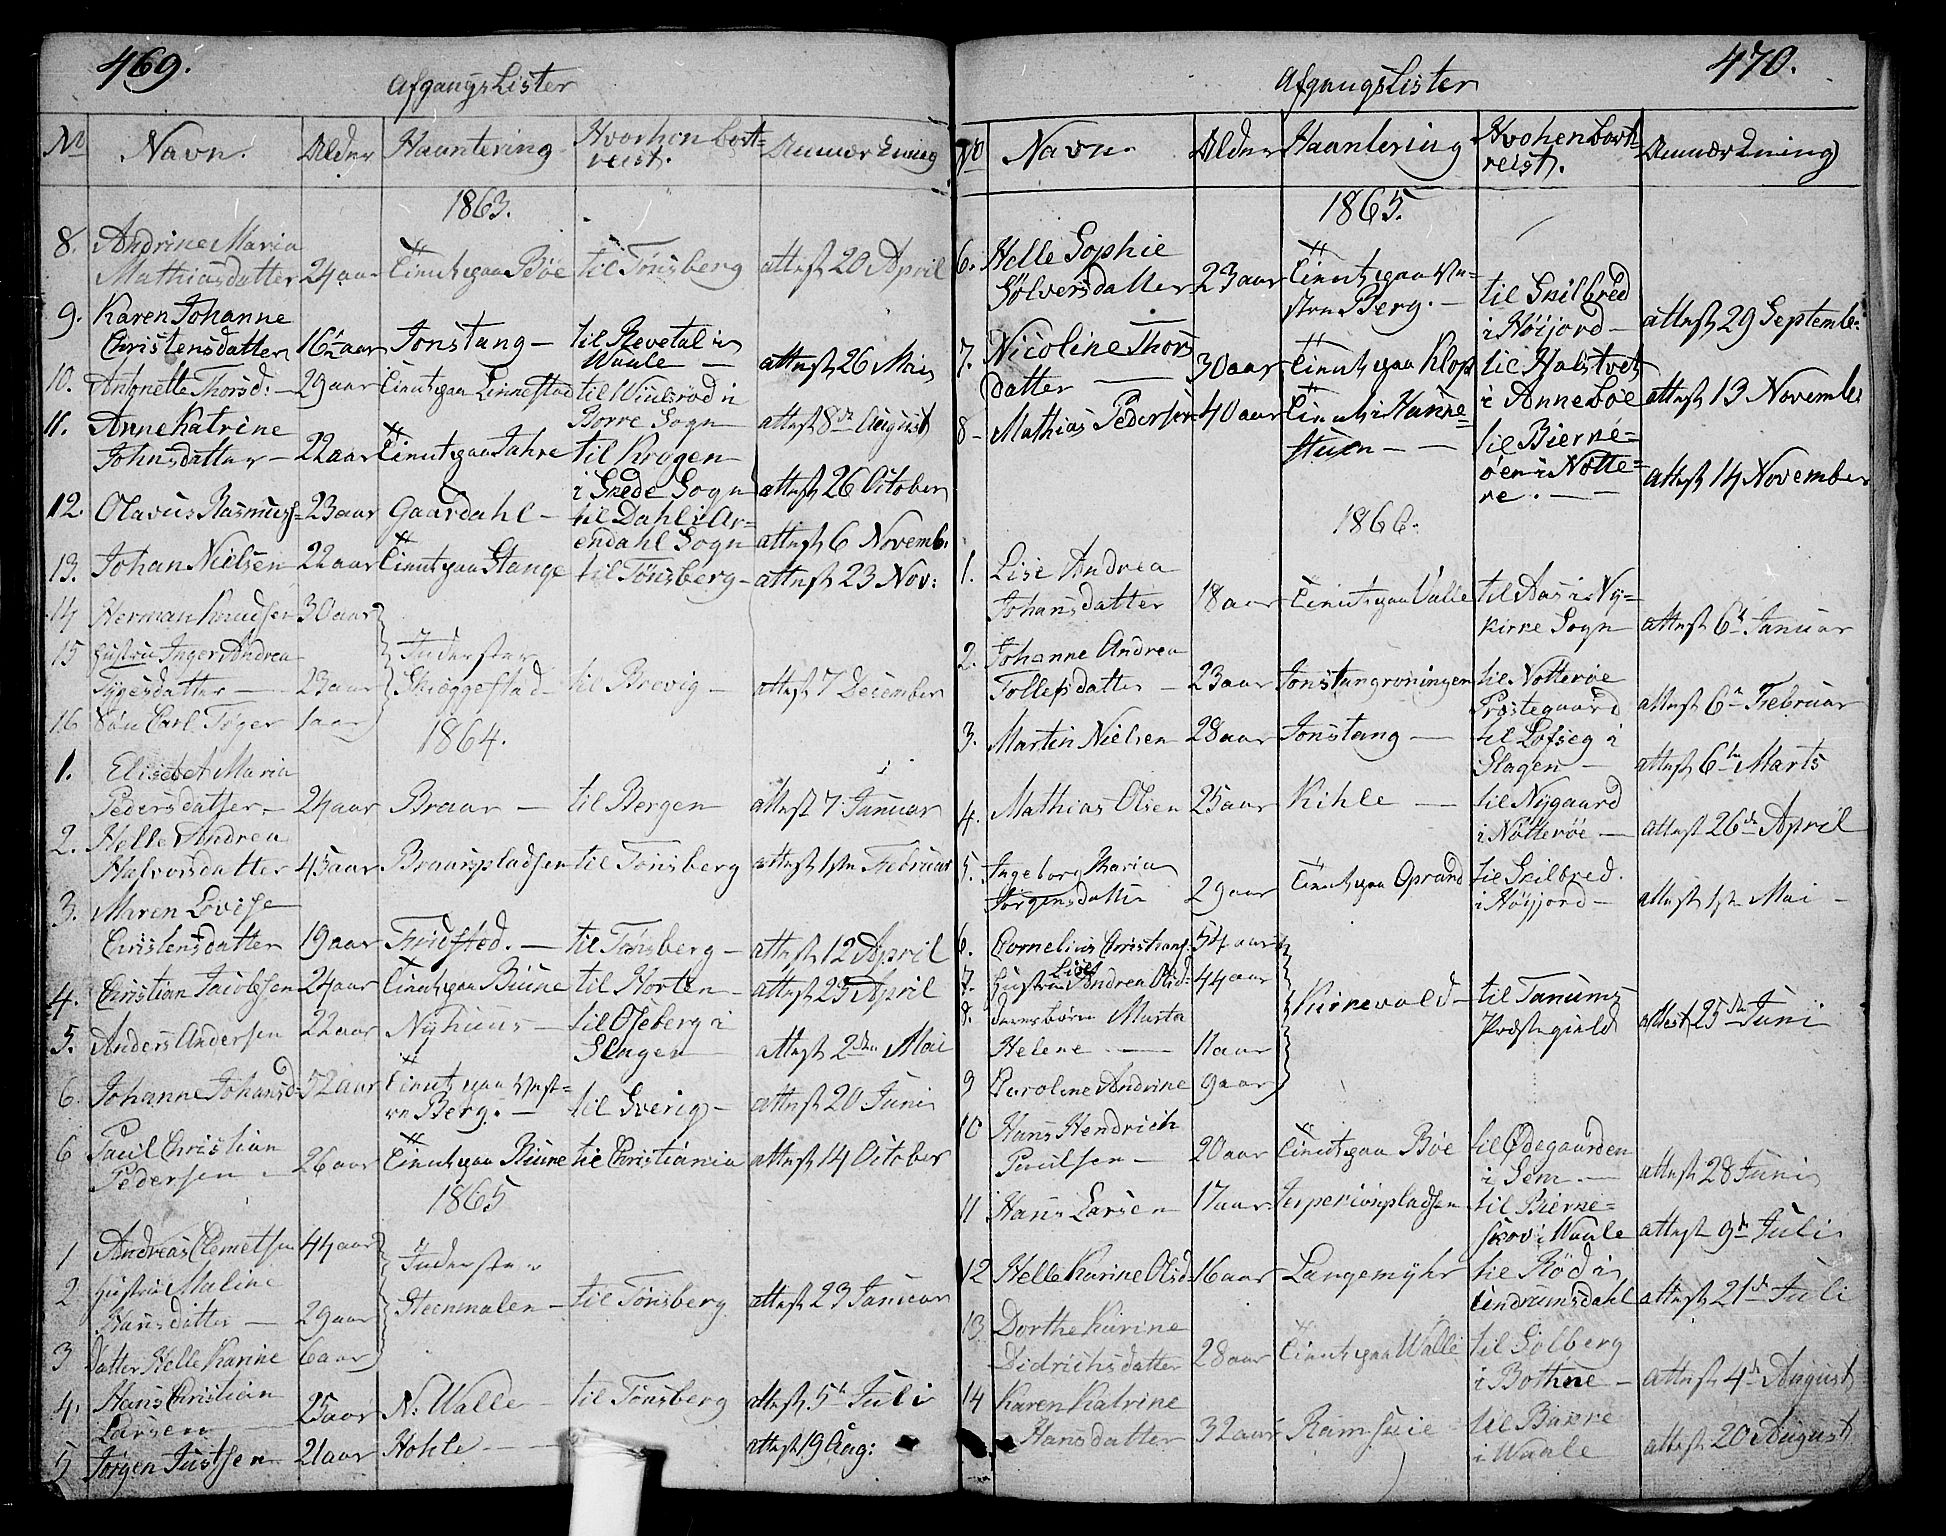 469.
Afgangslister
No Navn. Alder Haantering Hvorhen bort=
reist. Anmærkning
1863.
8. Andrine Maria
Mathiasdatter 24 aar Tienst paa Bøe til Tønsberg attest 20 April
9. Karen Johanne
Christensdatter 16½ aar Jonstang – til Revetal i
Waale – attest 26 Mai
10. Antonette Thorsd: – 29 aar Tienst paa Linnestad til
Borre Sogn attest 8de August
11. Anne Katrine
Johnsdatter – 22 aar Tienst paa Jahre til Krogen
i Skede Sogn attest 26 October
12. Olavus Rasmuss– 23 aar Gaardahl – til Dahl i Ar=
endahl Sogn attest 6 Novemb:
13. Johan Nielsen 22 aar Tienst paa Stange til Tønsberg – attest 23 Nov:
14 Herman Knudsen 30 aar
15 Hustru Inger Andrea
datter – 23 aar Inderster
Skoggestad – til Brevig – attest 7 December
16 Søn Carl Teger 1 aar
1864.
1. Elisebet Maria
Pedersdatter – 24 aar Braar – til Bergen attest 7 Januar
2. Helle Andrea
Halvorsdatter 45 aar Braarspladsen til Tønsberg attest 1ste Februar
3. Maren Lovise
Christensdatter 19 aar – til Tønsberg – attest 12 April
4. Christian Jacobsen 24 aar Tienst paa Biune til Horten – attest 25 April
5. Anders Andersen 22 aar Nyhuus – til Oseberg i
Slagen attest 2den Mai
6. Johanne Johansd– 52 aar Tienst paa Vest=
re Berg. – til Sverig – attest 20 Juni
6 Paul Christian
Pedersen – 26 aar Tienst paa Biune til Christiania attest 14 October
1865
1 Andreas Clemetsen 44 aar Inderster
2 Hustru Maline
Hansdatter – 29 aar Steenmalen – til Tønsberg attest 23 Januar
3 Datter Helle Karine 6 aar
4. Hans Christian
Larsen 25 aar N: Walle – til Tønsberg attest 5te Juli
5 Jørgen Justsen 21 aar Hohle – attest 19 Aug:
470.
Afgangslister
No Navn. Alder Haantering Hvohen bort=
reist. Anmærkning
1865.
6. Helle Sophie
Sølversdatter 23 aar Tienst paa Ve=
stre Berg. – til Skilbred
i Høijord – attest 29 Septembe:
7. Nicoline Thors
datter – 30 aar Tienst paa Klop til Halstvet
i Anneboe attest 13 November
8 – Mathias Pedersen 40 aar Tienst i Hanne=
stuen – til Bierke=
øen i Nøtte=
re. – attest 14 November
1866.
1. Lise Andrea
Johansdatter 18 aar Tienst paa Valle til Aas i Ny=
kirke Sogn attest 6te Januar
2. Johanne Andrea
Tollefsdatter – 23 aar Jonstangroningen til Nøtterøe
Prestegaard attest 6te Februar
3. Martin Nielsen 28 aar Jonstang – til Lofseg i
Slagen – attest 6te Marts
4. Mathias Olsen 25 aar Kihle – til Nygaard
i Nøtterøe – attest 26de April
5. Ingeborg Maria
Jørgensdatter 29 aar Tienst paa Oprand til Skilbred.
i Høijord – attest 1ste Mai –
6. Cornelius Christians. 54 aar
7. Hustru Lise Andrea Olsd: 44 aar
8. Deres børn Marta
Helene – 11 aar Kirkevold – til Tanums
Præstegield attest 25de Juni
9 Caroline Andrine 9 aar
10 Hans Hendrich
Paulsen – 20 aar Tienst paa Bøe til Ødegaarden
i Sem – attest 28 Juni
11 Hans Larsen 17 aar Jespersonpladsen til Bierke=
skov i Waale attest 9de Juli
12 Helle Karine Olsd 16 aar Langemyhr til Rød i
Undrumsdahl attest 21de Juli
13 Dorthe Karine
Didrichsdatter 28 aar Tienst paa Walle til Solberg
i Bothne – attest 4de August
14 Karen Katrine
Hansdatter 32 aar Ramsuie til Bakke
i Waale attest 20 August